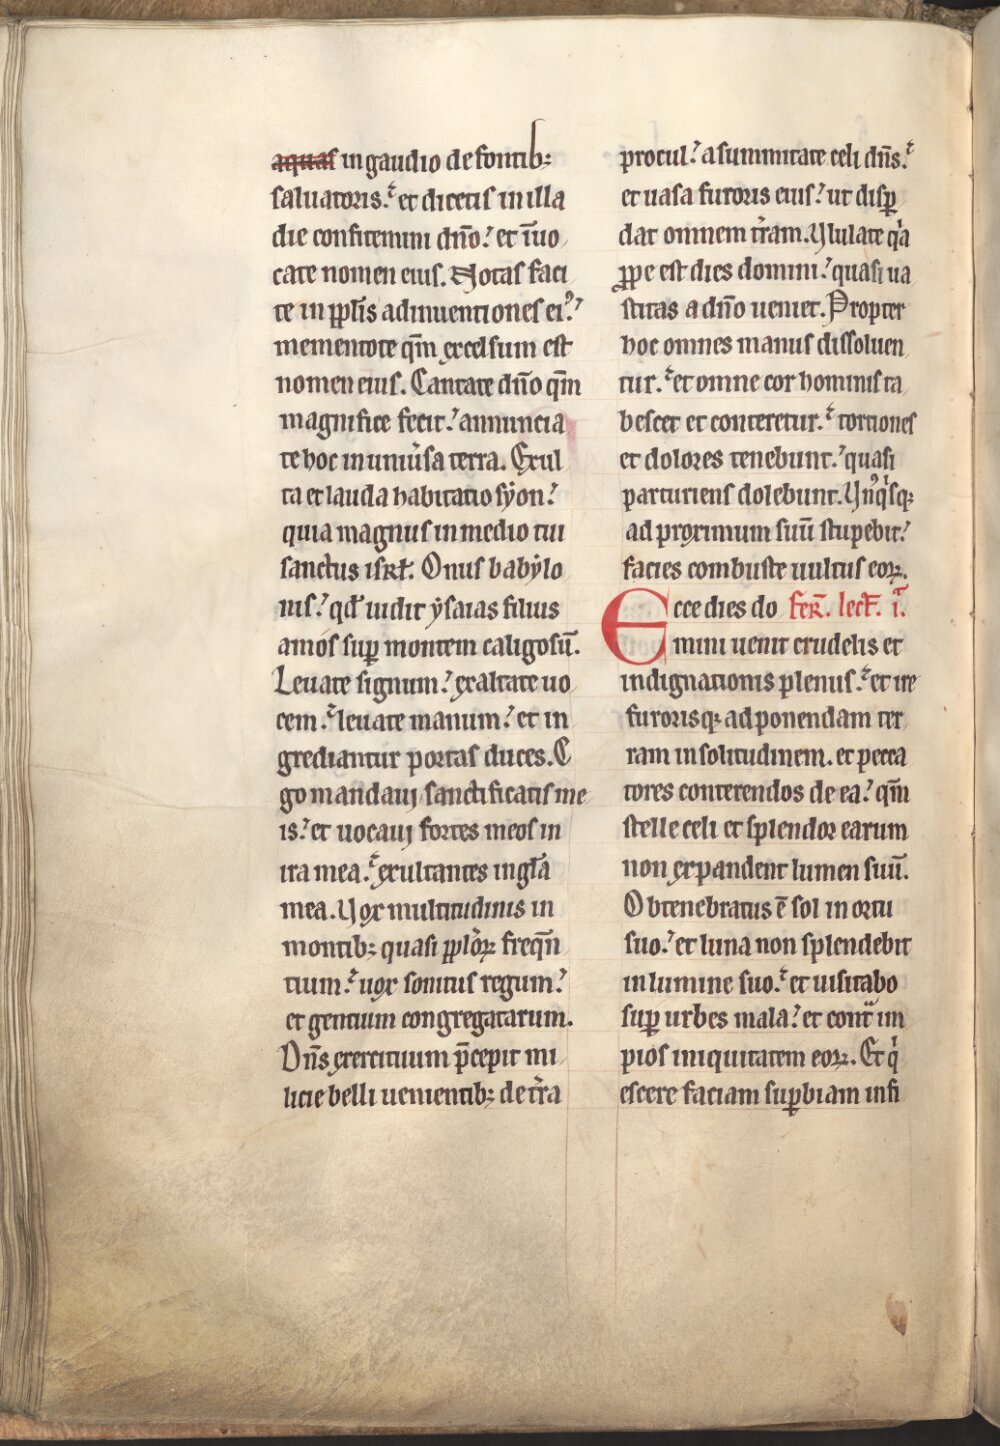 aquas in gaudio de fontib;
saluatoris. et dicetis in illa
die confitemini dño. et ĩuo
cate nomen eius. Notas faci
te in ppłis adinuentiones ei᾿.
mementote qm̃ excelsum est
nomen eius. Cantate dño qm̃
magnifice fecit. annuncia
te hoc in uniũsa terra. Exul
ta et lauda habitatio sẏon.
quia magnus in medio tui
sanctus isrł. Onus babẏlo
nis. qđ uidit ẏsaias filius
amos suꝑ montem caligosũ.
Leuate signum. exaltate uo
cem. leuate manum. et in
grediantur portas duces. E
go mandauj sanctificatis me
is. et uocauj fortes meos in
ira mea. exultantes in gła
mea. Uox multitudinis in
montib; quasi pploꝝ freq̃n
tium. uox sonitus regum.
et gentium congregatarum.
Dñs exercituum p̃cepit mi
licie belli uenientib; de tr̃a
procul. a summitate celi dñs.
et uasa furoris eius. ut disꝑ
dat omnem tr̃am. Ululate qͥa
ꝓpe est dies domini. quasi ua
stitas a dño ueniet. Propter
hoc omnes manus dissoluen
tur. et omne cor hominis ta
bescet et conteretur. tortiones
et dolores tenebunt. quasi
parturiens dolebunt. Unꝰqͥsq;
ad proximum suũ stupebit.
facies combuste uultus eoꝝ.
Ecce dies do fer̃. lect̃. i.
mini uenit crudelis et
indignationis plenus. et ire
furorisq; ad ponendam ter
ram in solitudinem. et pecca
tores conterendos de ea. qm̃
stelle celi et splendor earum
non expandent lumen suũ.
Obtenebratus ẽ sol in ortu
suo. et luna non splendebit
in lumine suo. et uisitabo
suꝑ urbes mala. et cont̃ im
pios iniquitatem eoꝝ. Et qͥ
escere faciam suꝑbiam infi